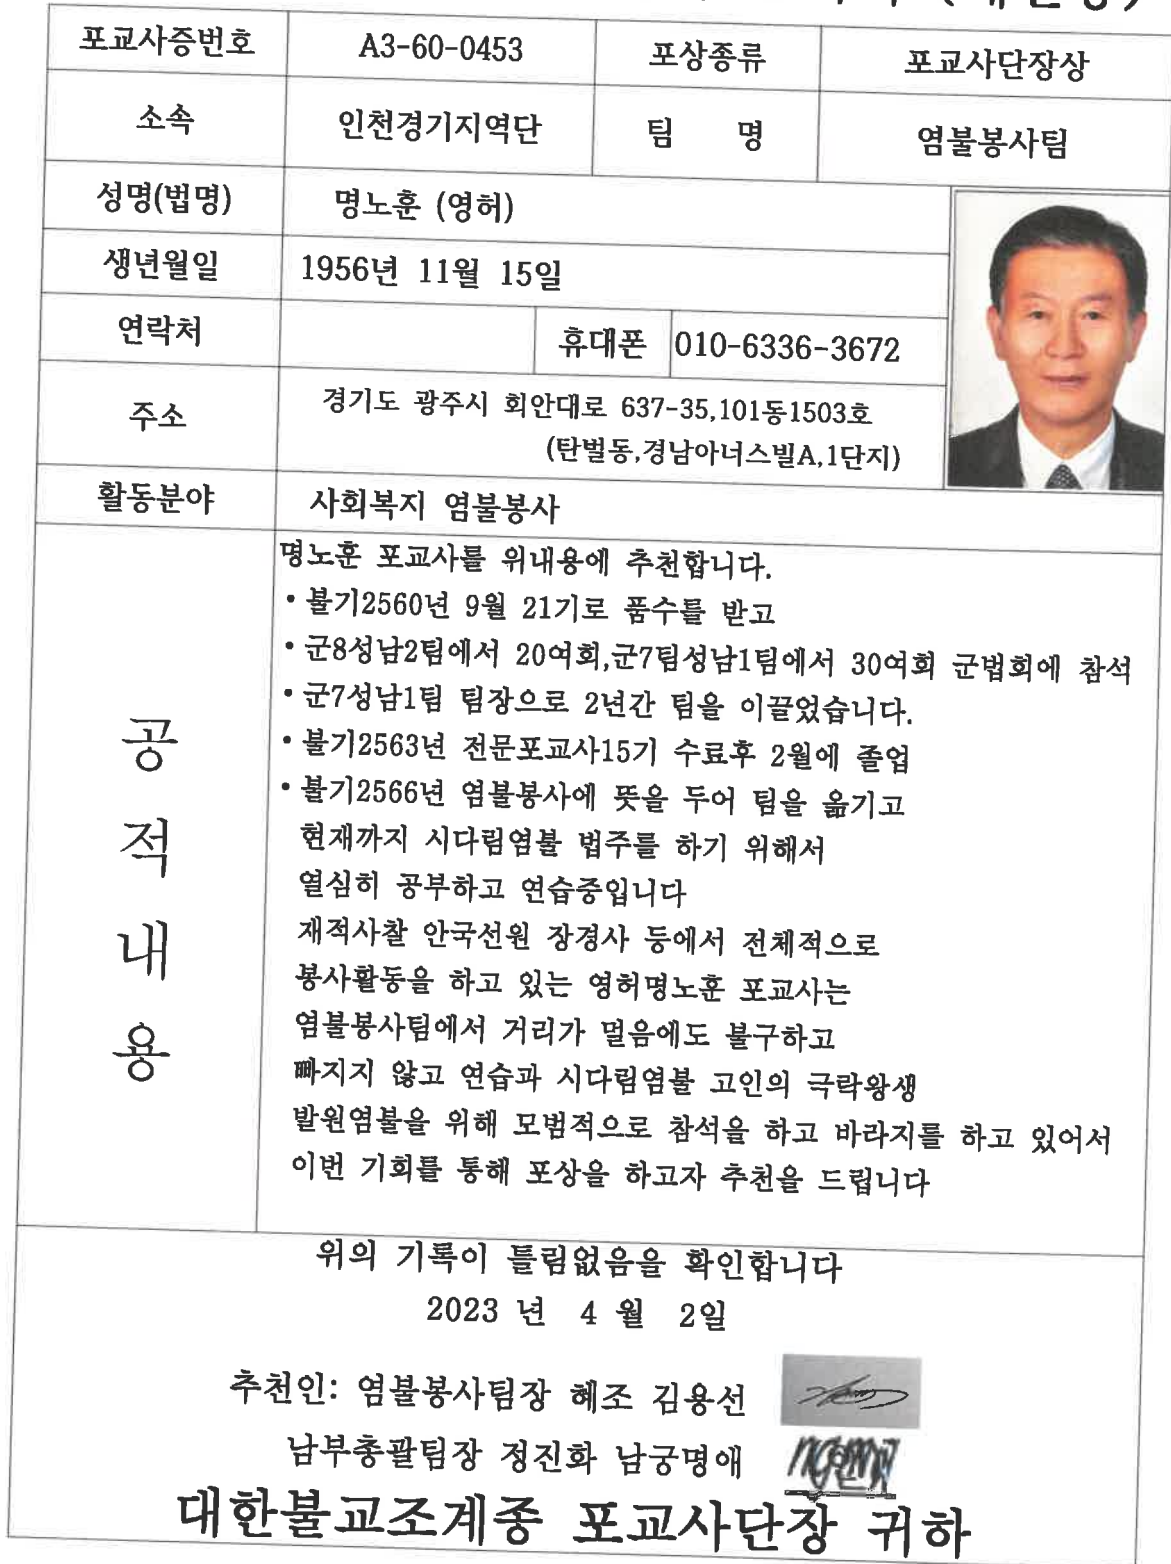 포교사증번호 A3-60-0453 포상종류 포교사단장상
소속 인천경기지역단 팀 명 염불봉사팀
성명(법명) 명노훈 (영허)
생년월일 1956년 11월 15일
연락처 휴대폰 010-6336-3672
주소 경기도 광주시 회안대로 637-35,101동1503호
(탄벌동,경남아너스빌A,1단지)
활동분야 사회복지 염불봉사
공적내용
명노훈 포교사를 위내용에 추천합니다.
·불기2560년 9월 21기로 품수를 받고
·군8성남2팀에서 20여회,군7팀성남1팀에서 30여회 군법회에 참석
·군7성남1팀 팀장으로 2년간 팀을 이끌었습니다.
·불기2563년 전문포교사15기 수료후 2월에 졸업
·불기2566년 염불봉사에 뜻을 두어 팀을 옮기고
현재까지 시다림염불 법주를 하기 위해서
열심히 공부하고 연습중입니다
재적사찰 안국선원 장경사 등에서 전체적으로
봉사활동을 하고 있는 영허명노훈 포교사는
염불봉사팀에서 거리가 멀음에도 불구하고
빠지지 않고 연습과 시다림염불 고인의 극락왕생
발원염불을 위해 모범적으로 참석을 하고 바라지를 하고 있어서
이번 기회를 통해 포상을 하고자 추천을 드립니다
위의 기록이 틀림없음을 확인합니다
2023 년 4 월 2일
추천인: 염불봉사팀장 혜조 김용선
남부총괄팀장 정진화 남궁명애
대한불교조계종 포교사단장 귀하